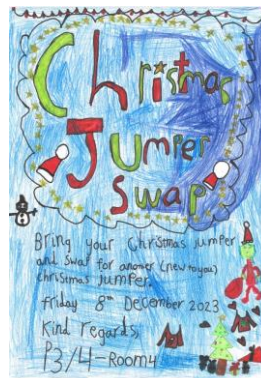 Christmas
Jumper
Swap
Bring your Christmas Jumper
and Swap for another (new to you)
Christmas Jumper.
Friday 8th December 2023
Kind regards,
P3/4-Room 4